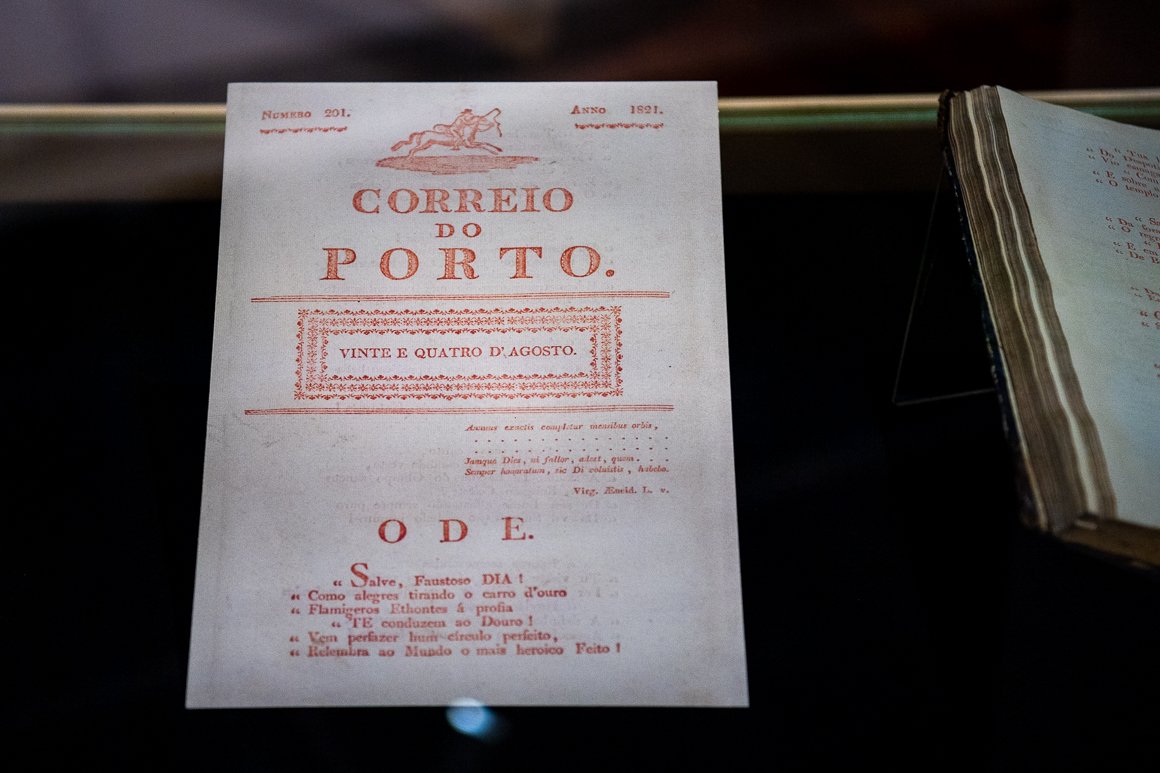 Numero 201.
Anno 1821.
CORREIO
DO
PORTO.
VINTE E QUATRO D'AGOSTO.
Annuus exactis completur mensibus orbis,
. . . . . . . . . . . .
. . . . . . . . . . . .
Jamque Dies, ni fallor, adest, quem. . . .
Semper honoratum, sic Di voluistis, habebo.
Virg. Æneid. L. v.
ODE.
“ Salve, Faustoso DIA !
“ Como alegres tirando o carro d'ouro
“ Flamigeros Ethontes á profia
“ TE conduzem ao Douro !
“ Vem perfazer hum circulo perfeito,
“ Relembra ao Mundo o mais heroico Feito !
“ Tua
“ Do Despot
“ Vio
“ E sobre
“ O templo
“ E em